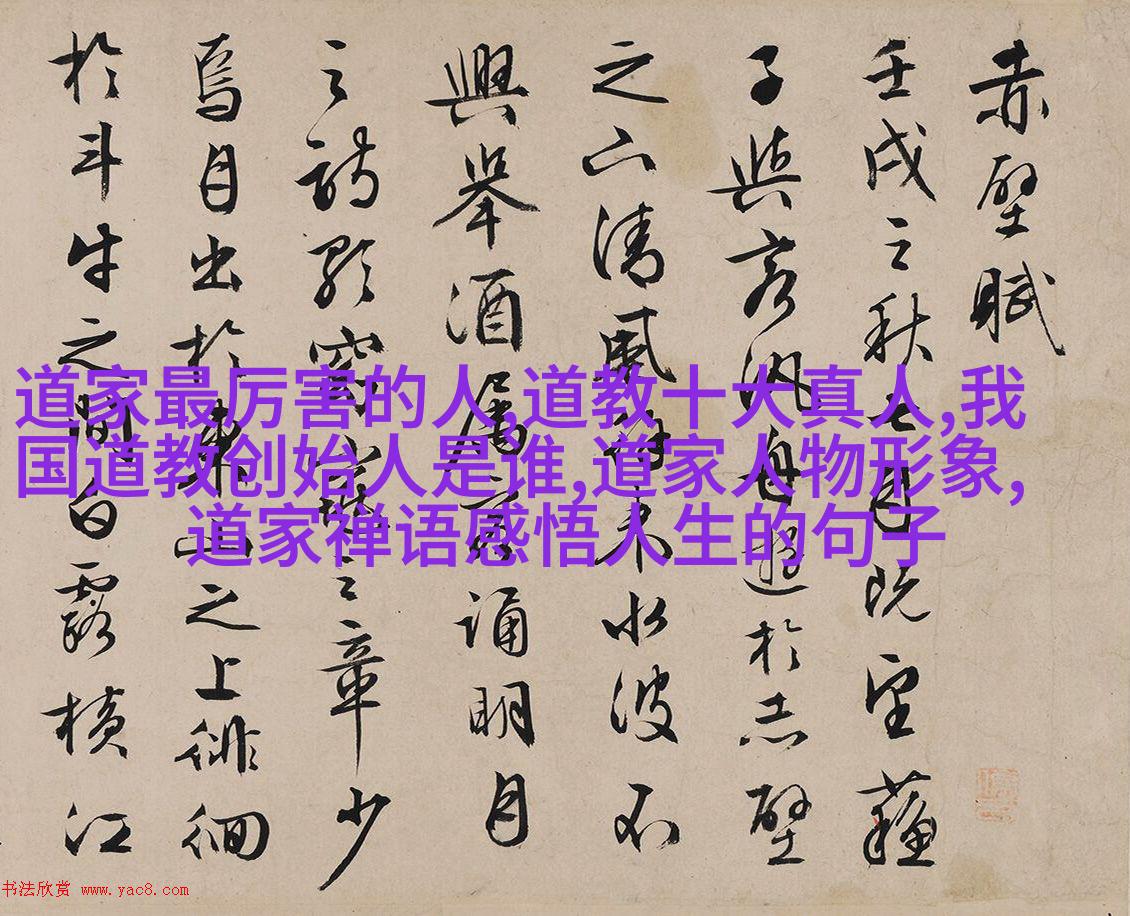 赤壁賦
壬戌之秋七月既望蘓
子與客汎舟遊於赤壁
之下清風徐來水波不
興舉酒屬客誦明月
之詩歌窈窕之章少
焉月出於東山之上徘徊
於斗牛之間白露橫江
道家最厉害的人,道教十大真人,我
国道教创始人是谁,道家人物形象,
道家禅语感悟人生的句子
书法欣赏 www.yac8.com